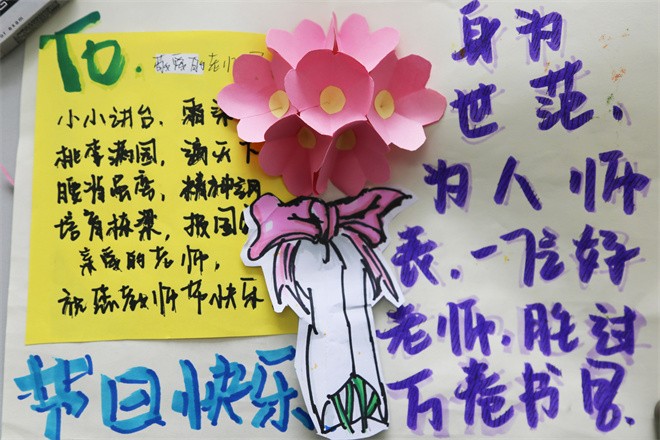 To.
亲爱的老师
小小讲台，
桃李满园，满天下
腰背虽弯，精神
培育栋梁，报国
亲爱的老师，
祝您教师节快乐
节日快乐
身为
世范.
为人师
表.一个好
老师.胜过
万卷书